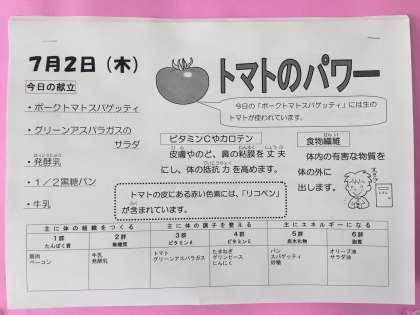 7月2日（木）
トマトのパワー
今日の献立
・ポークトマトスパゲッティ
・グリーンアスパラガスの
サラダ
・発酵乳
・1／2黒糖パン
・牛乳
今日の「ポークトマトスパゲッティ」には生の
トマトが使われています。
ビタミンCやカロテン
皮膚やのど、鼻の粘膜を丈夫
にし、体の抵抗力を高めます。
食物繊維
体内の有害な物質を
体の外に
出します。
トマトの皮にある赤い色素には、「リコペン」
が含まれています。
主に体の組織をつくる
主に体の調子を整える
主にエネルギーになる
1群
たんぱく質
2群
無機質
3群
ビタミンA
4群
ビタミンC
5群
炭水化物
6群
脂質
豚肉
ベーコン
牛乳
発酵乳
トマト
グリーンアスパラガス
たまねぎ
グリンピース
にんにく
パン
スパゲッティ
砂糖
オリーブ油
サラダ油